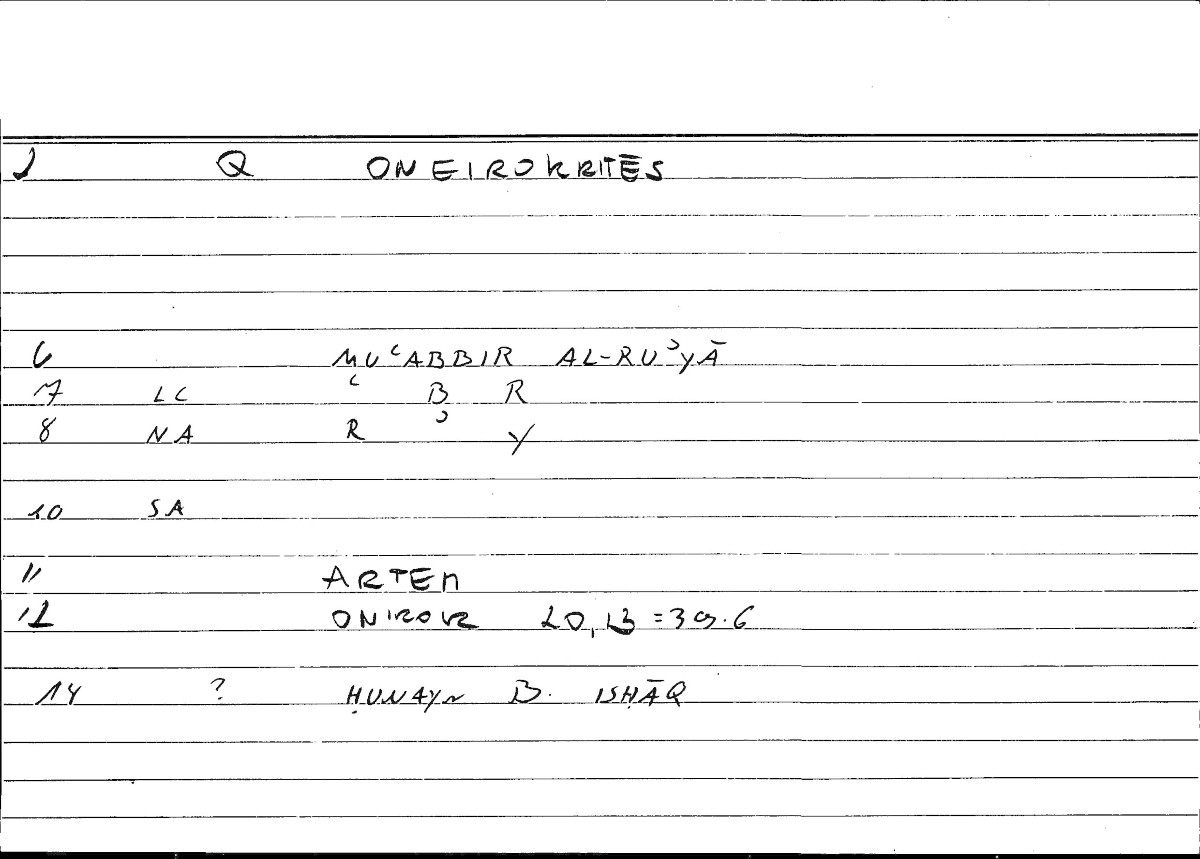 1 Q ONEIROKRITĒS
6 MUʿABBIR AL-RUʾYĀ
7 LC ʿ B R
8 NA R ʾ Y
10 SA
11 ARTEM
12 ONIROKR 20,13=39.6
14 ? ḤUNAYN B. ISḤĀQ